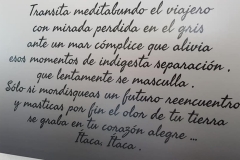 Transita meditabundo el viajero
con mirada perdida en el gris
ante un mar cómplice que alivia
esos momentos de indigesta separación,
que lentamente se masculla.
Sólo si mordisqueas un futuro reencuentro
y masticas por fin el olor de tu tierra
se graba en tu corazón alegre ...
Ítaca, Ítaca.